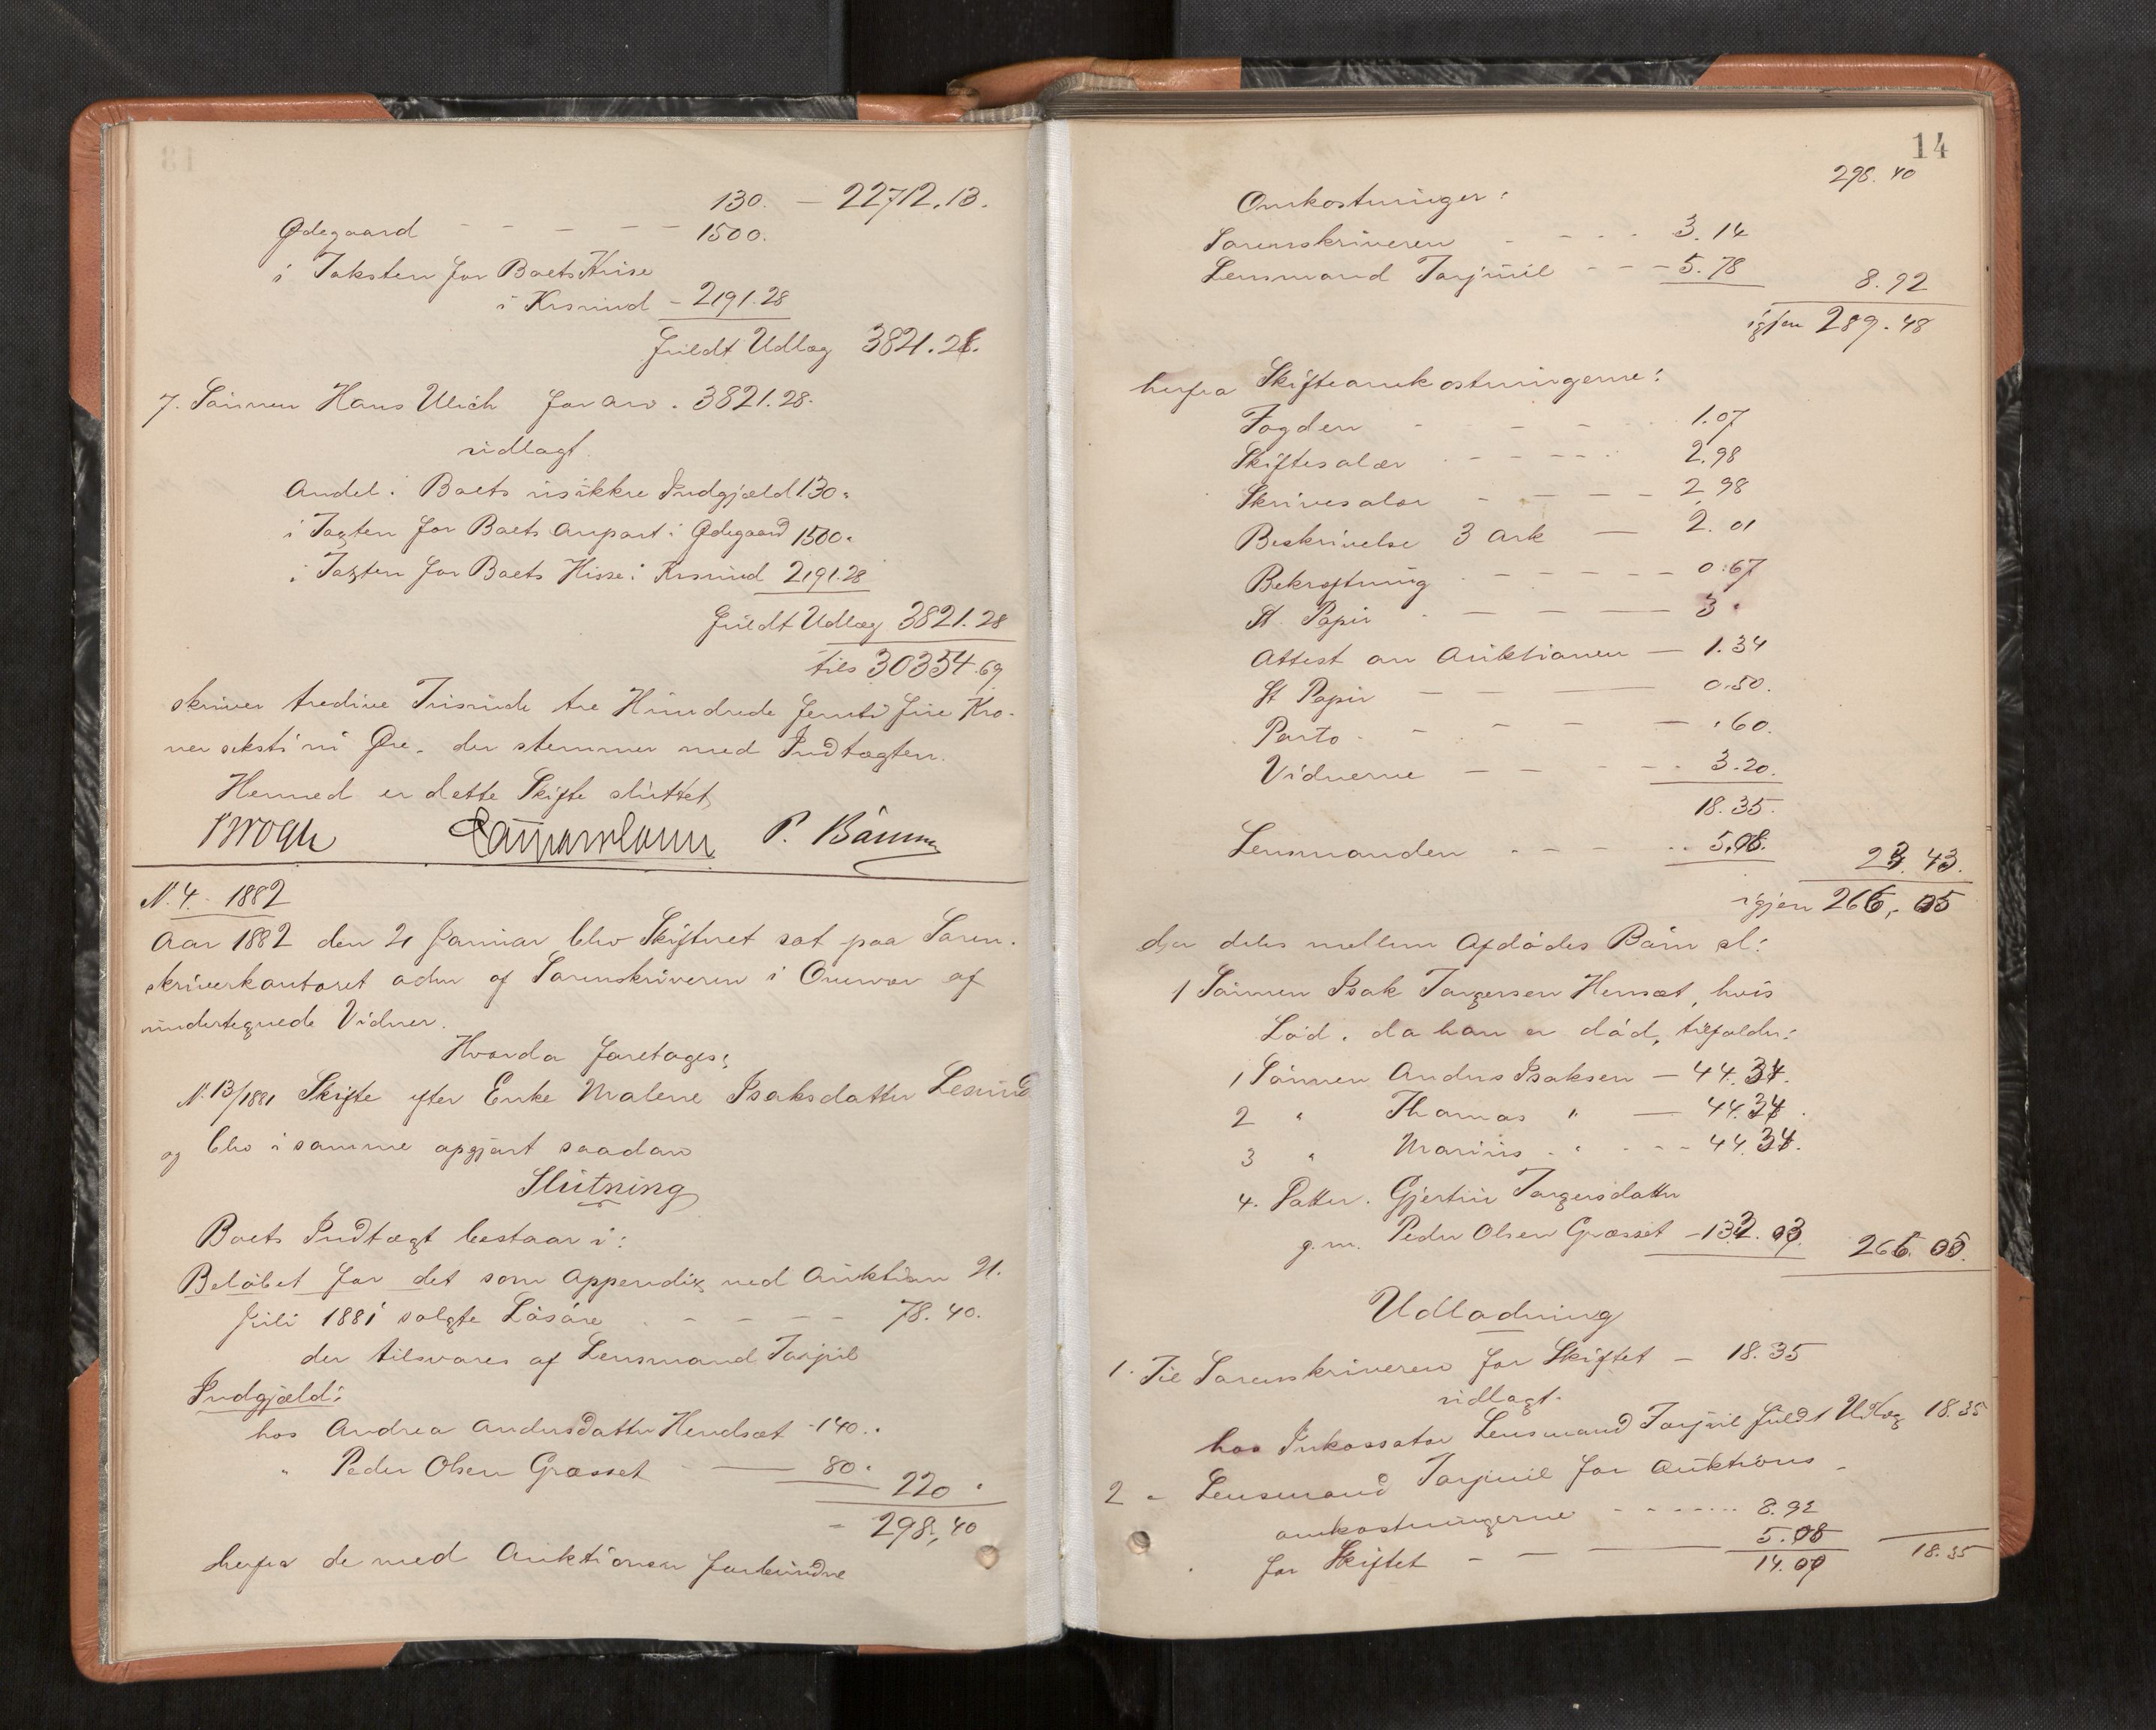 130. — 22712.13.
Ødegaard - - - - - 1500.
i Taksten for Boets Huse
i Krsund - 2191.28
fuldt Udlæg 3821.28.
7. Sønnen Hans Ulich for arv. 3821.28.
udlagt
Andel i Boets usikkre Indgjæld 130.
i Taxten for Boets Anpart i Ødegaard 1500.
i Taxten for Boets Huse i Krsund 2191.28
fuldt Udlæg 3821.28
tils 30354.69
skriver tredive Tusinde tre Hundrede femti fire Kro-
ner seksti ni Øre. der stemmer med Indtægten.
Hermed er dette Skifte sluttet
Brogh P. Bäum
N. 4. 1882
Aar 1882 den 21 Januar blev Skifteret sat paa Soren-
skriverkontoret adm af Sorenskriveren i Overvær af
undertegnede Vidner.
Hvorda foretages:
N. 13/1881 Skifte efter Enke Malene Isaksdatter Lesund
og blev i samme opgjort saadan
Slutning
Boets Indtægt bestaar i:
Beløbet for det som Appendix ved Auktion 21.
Juli 1881 solgte Løsøre - - - - - 78.40.
der tilsvares af Lensmand Tarjuil
Indgjæld:
hos Andrea Andersdatter Hendset - 140..
" Peder Olsen Græsset — 80.
220 .
- 298,40
herfra de med Auktionen forbundne
14
298.40
Omkostninger:
Sorenskriveren - - - - 3.14
Lensmand Tarjuil - - - 5.78
8.92
igjen 289.48
herfra Skifteomkostningerne:
Fogden - - - - 1.07
Skiftesalær - - - - - 2.98
Skrivesalær - - - - 2.98
Beskrivelse 3 Ark — 2.01
Bekræftning - - - - - 0.67
St. Papir - — — 3.
Attest om Auktionen — 1.34
St Papir — — — 0.50.
Porto - - - - — .60.
Vidnerne — — - - - 3.20.
18.35.
Lensmanden - - - .. 5.08.
23.43.
igjen 266,05
der deles mellem Afdødes Børn sl:
1 Sønnen Isak Torgersen Hensæt, hvis
Lod, da han er død, tilfalder:
1 Sønnen Anders Isaksen — 44.34.
2 " Thomas " — 44.34.
3 " Marius - " - - - 44.34.
4. Datter. Gjertru Torgersdatter
g.m. Peder Olsen Græsset - 132.03.
266.05.
Udlodning
1. Til Sorenskriveren for Skiftet — 18.35
udlagt.
hos Inkassator Lensmand Tarjuil fuldt Udlæg 18.35
2 - Lensmand Tarjuil for Auktions-
omkostningerne - - - - - - 8.92
for Skiftet - — — 5.08
14.00
18.35